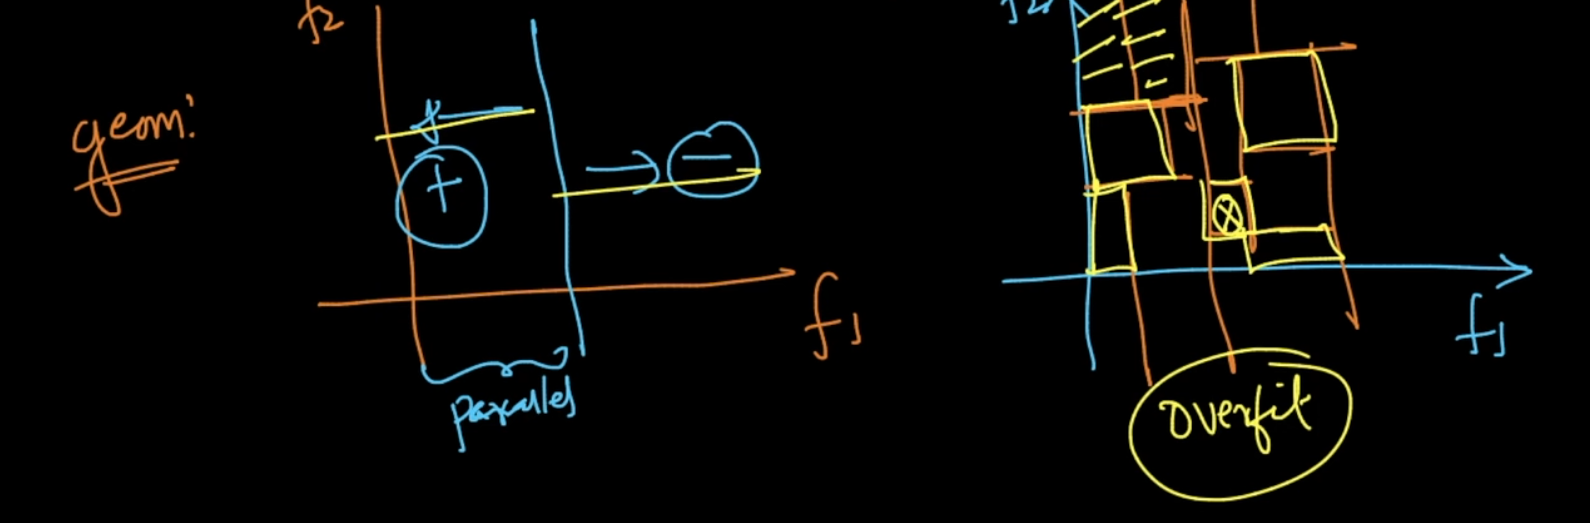 f2
geom:
+
−
f1
parallel
f2
x
f1
Overfit